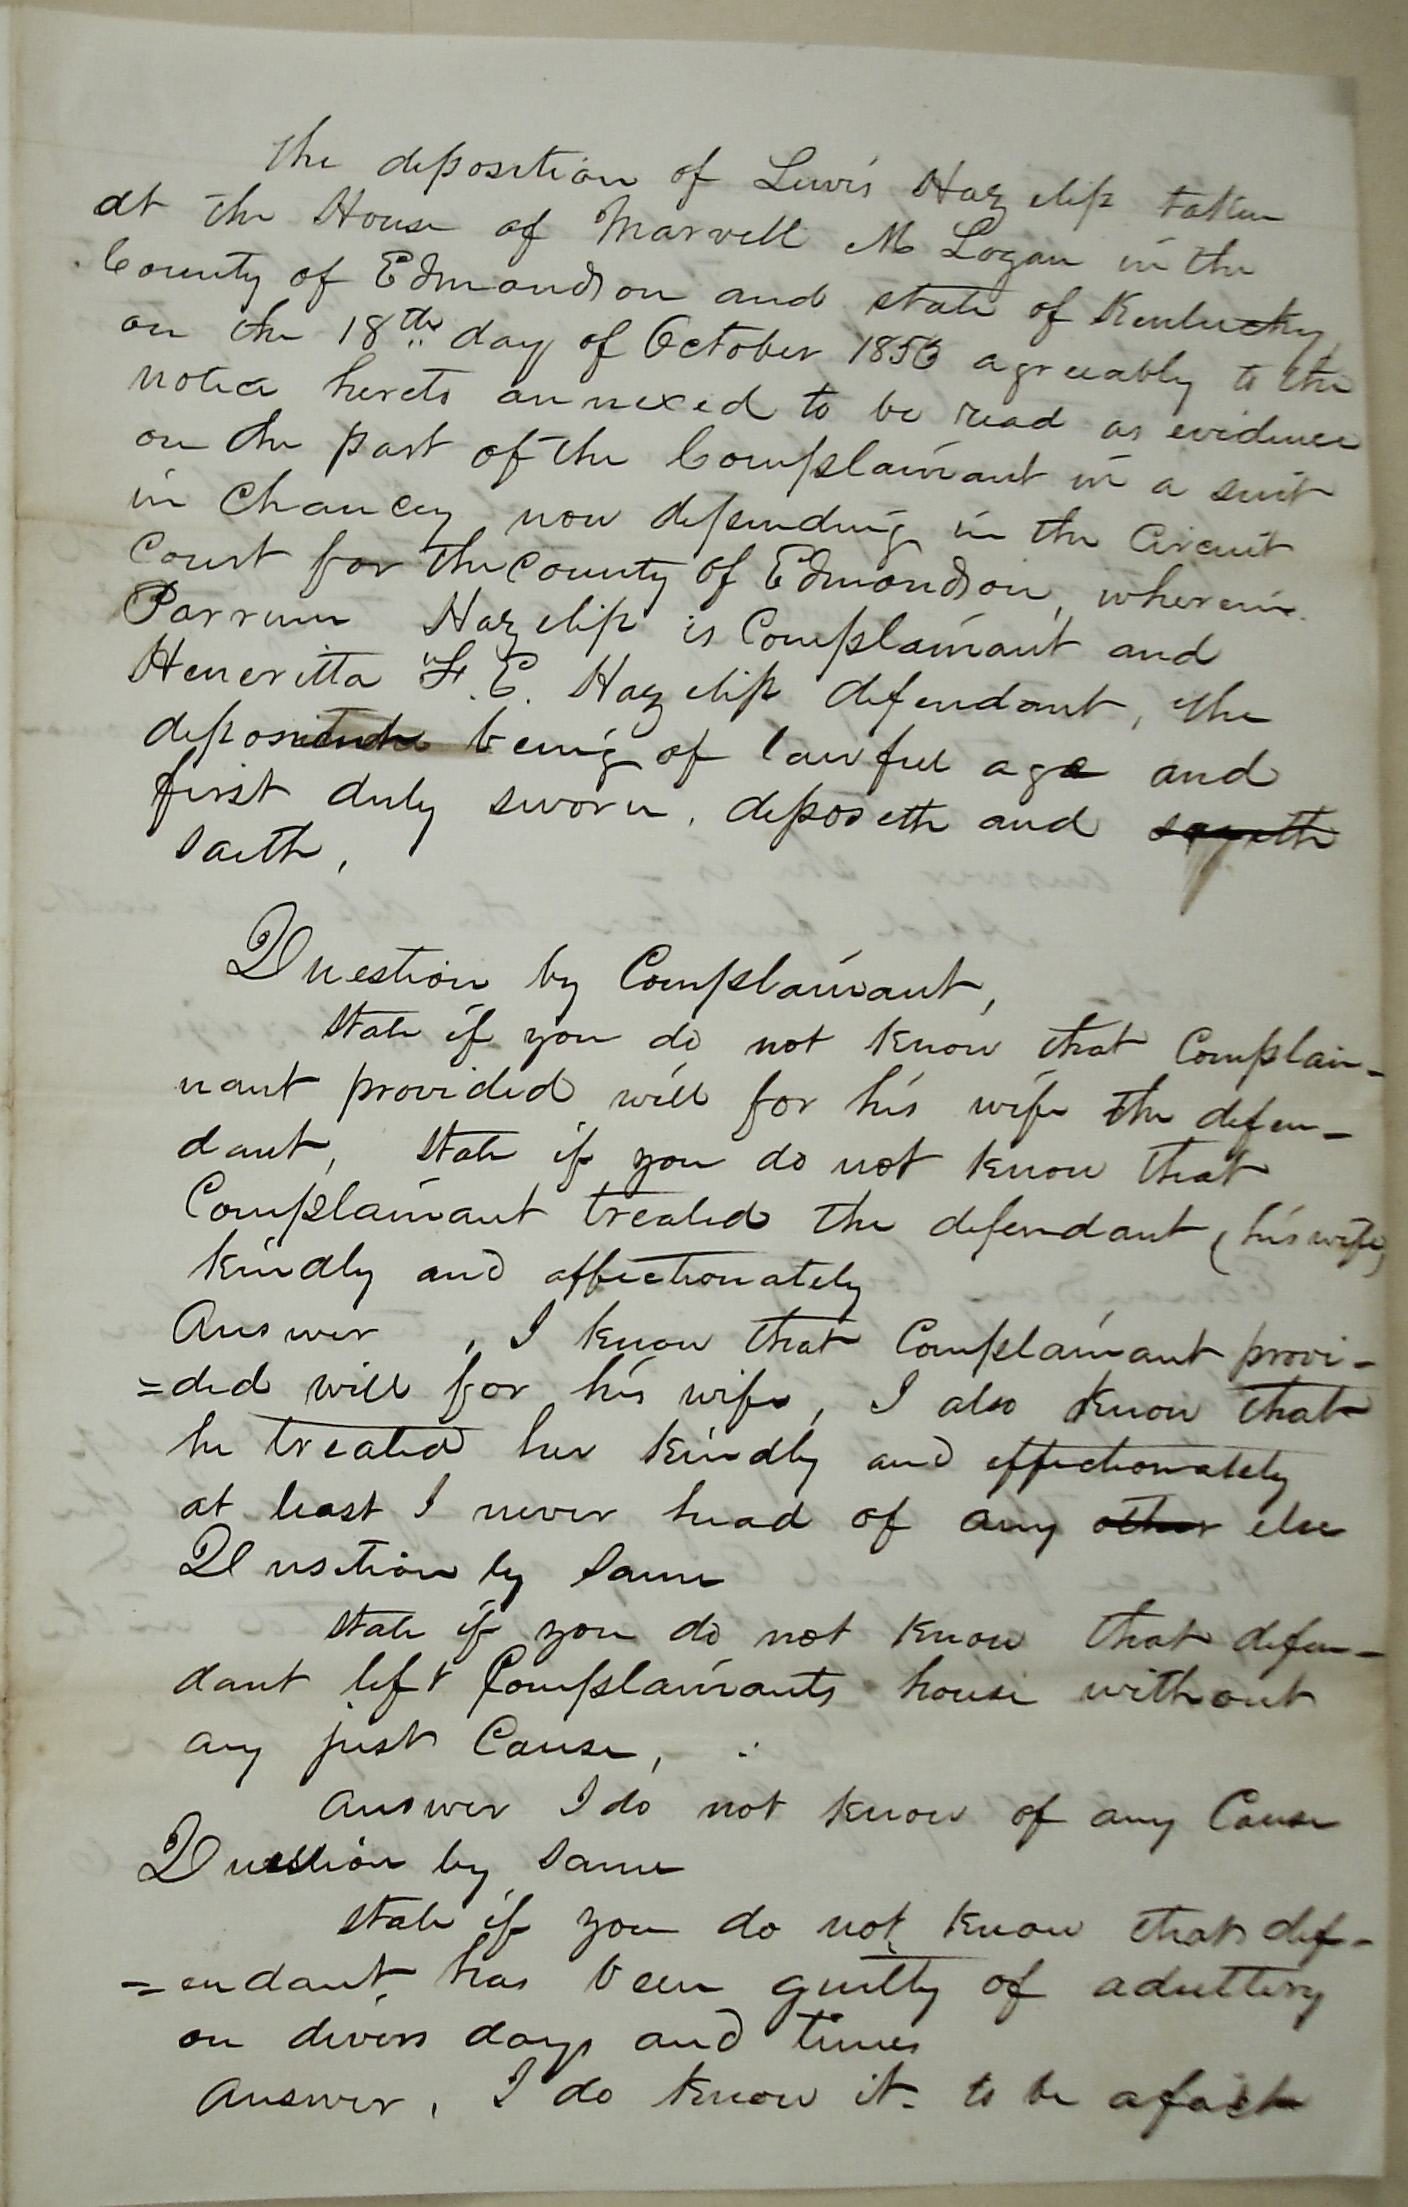 the deposition of Lewis Hazelip taken
at the House of Marvell M Logan in the
County of Edmondson and state of Kentucky
on the 18th day of October 1856 agreeably to the
notice hereto annexed to be read as evidence
on the part of the Complainant in a suit
in Chancey now depending in the Circuit
Court for the County of Edmondson, wherein
Parrum Hazelip is Complainant and
Heneritta F. E. Hazelip defendant, the
being of lawful age and
first duly sworn, deposeth and sayeth
saith,
Question by Complainant,
State if you do not know that Complain-
nant provided well for his wife the defen-
dant, state if you do not know that
Complainant treated the defendant (his wife)
kindly and affectionately
Answer, I know that Complainant provi-
=ded well for his wife, I also know that
he treated her kindly and effectionately
at least I never head of any other else
Qusition by same
State if you do not know that defen-
dant left Complainants house without
any just Cause,
Answer I do not know of any Cause
Question by same
State if you do not know that def-
=endant has been guilty of adultery
on divers days and times
Answer, I do know it to be a fact